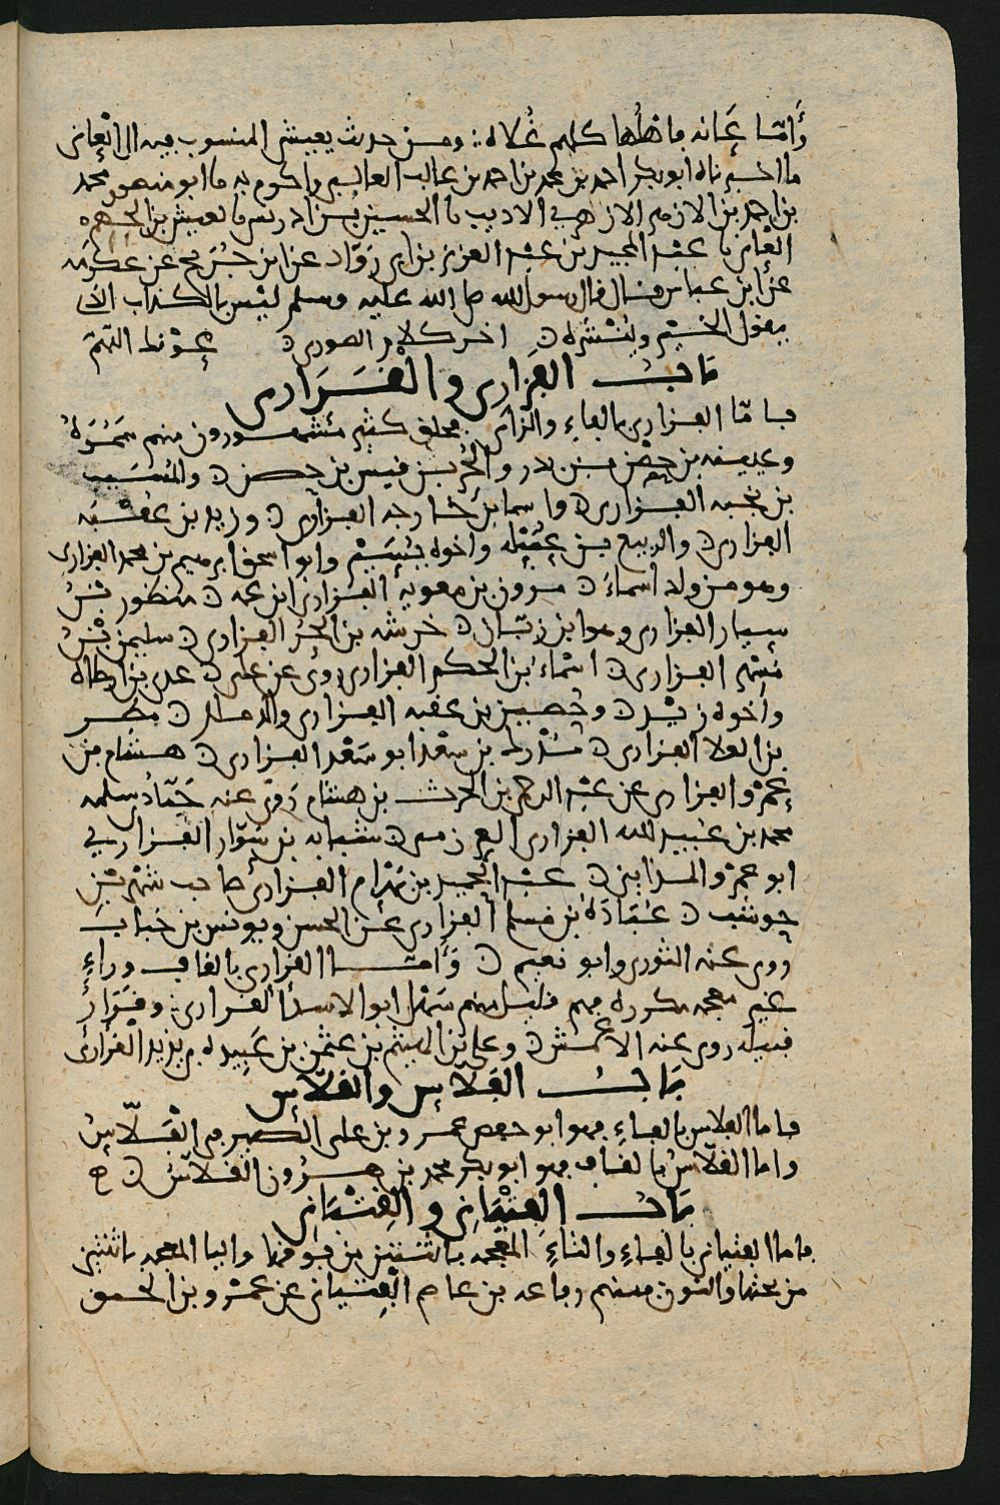 وَأمّا عَانه فاهلها كلهم غُلاه ومن حدث يعيش المنسوب فيه الى العانى
ما اخبرناه ابو بكر احمد بن محمد بن احمد بن غالب العالم واكرم به ما ابو منصور محمد
بن احمد بن الازهر الازهري الاديب نا الحسين بن ادريس نا يعيش بن الجهم
العانى نا عبد المجيد بن عبد العزيز بن ابى روّاد عن ابن جُريج عن عكرمه
عن ابن عباس قال قال رسول الله صلى الله عليه وسلم ليس بالكذاب الذى
يقول الخير اخر كلام الصورى
بَابُ الفزارى والقرارى
فامّا الفزارى بالفاء والزاى فخلق كثير مشهورون منهم سَمُرَةُ
وعيينه بن حِصْن بن بدر والحُرّ بن قيس بن حصن والمُسَيب
بن نجبه الفزارى واسما بن خارجه الفزارى وزيد بن عقبه
الفزارى والربيع بن عُمَيْله واخوه يُسَيْر وابو اسحق ابرهيم بن محمد الفزارى
وهو من ولد أسماء مرون بن معويه الفزارى ابن عمه منظور بْنُ
سيار الفزارى وهو ابن زبّان خرشه بن الحُرّ الفزارى سليمن بْنُ
الفزارى اسْماءُ بن الحكم الفزارى روى عن على عدى بن ارطاه
واخوه زيْد وحُصين بن عقبه الفزارى مطر
بن العلا الفزارى بن سعْد ابو سَعْد الفزارى هشام بن
عَمْرو الفزارى عن عبْد الرحمن بن الحرث بن هشام رَوى عنه حَمّاد بن سلمه
محمد بن عُبيد الله الفزارى العرزمى شبابه بن سَوّار الفزاريي
ابو عمرو المداينى عبْد الحميد بن بَهْرام الفزارى صاحب شهْر بْن
حوشب عُبَادَة بن مسلم الفزارى عن الحسن ويونس بن خباب
روى عنه الثورى وابو نعيم وَأمّا القرارى بالقاف وراءٍ
غير معجمه مكرره فهم قليل منهم ابو الاسد القرارى وقَرَارُ
قبيله روى عنه الاعْمش وعلى بن الهيثم بن عثمن بن عَبِيده بن يزيد القرارى
بَابُ الفَلاّس والقلاّس
فاما الفلاس بالفاءِ فهو ابو حفص عمرو بن على الصيرفى الفَلاّسُ
واما القلاّسُ بالقاف فهو ابو بكر محمد بن هرُون القلاّسُ
بَابُ الفِتْيَانى والقِتْبَانى
فاما الفتيانى بالفاءِ والتاءِ المعجمه باثنتين من فوقها واليا المعجمه باثنتين
من تحتها والنون فمنهم رفاعه بن عاصم الفِتْيانى عن عمْرو بن الحمق